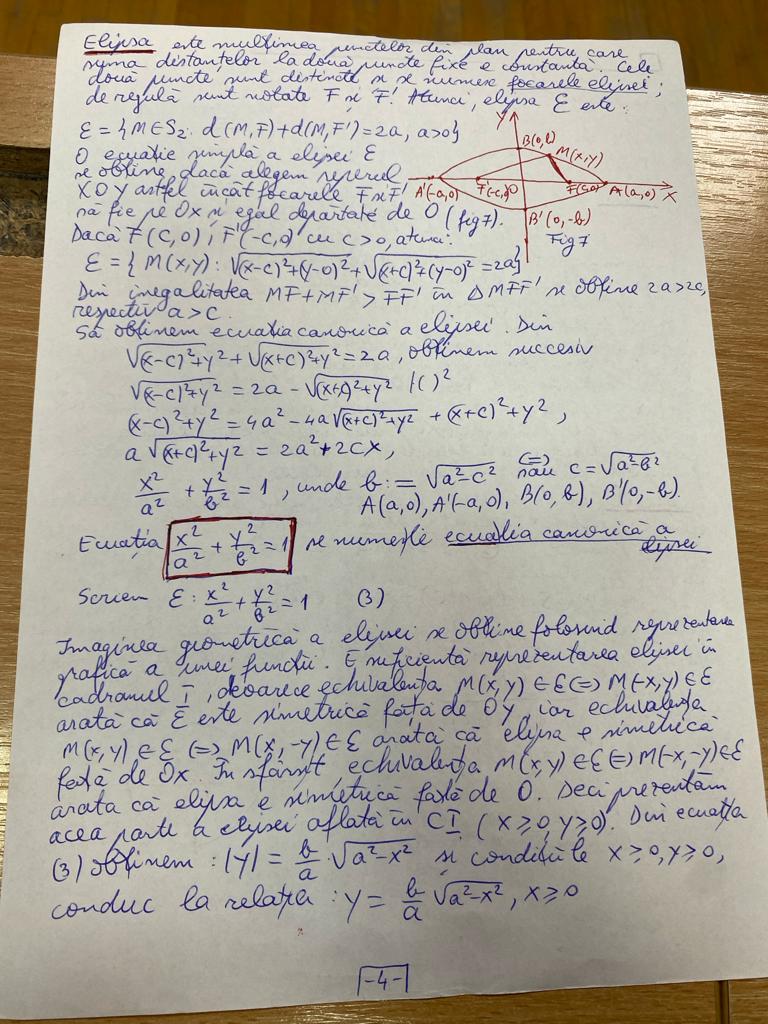 Elipsa este mulțimea punctelor din plan pentru care
suma distanțelor la două puncte fixe e constantă. Cele
două puncte sunt distincte și se numesc focarele elipsei;
de regulă sunt notate F și F'. Atunci, elipsa ℰ este:
ℰ = {M∈S₂: d(M,F)+d(M,F')=2a, a>0}
O ecuație simplă a elipsei ℰ
se obține dacă alegem reperul
XOY astfel încât focarele F și F'
să fie pe Ox și egal depărtate de O (fig 7).
Y
B(0,b)
M(x,y)
A'(-a,0)
F'(-c,0)
O
F(c,0)
A(a,0)
X
B'(0,-b)
Fig 7
Dacă F(c,0), F'(-c,0) cu c>0, atunci:
ℰ = { M(x,y): √((x-c)²+(y-0)²) + √((x+c)²+(y-0)²) = 2a}
Din inegalitatea MF+MF' > FF' în △MFF' se obține 2a>2c,
respectiv a>c.
Să obținem ecuația canonică a elipsei. Din
√((x-c)²+y²) + √((x+c)²+y²) = 2a, obținem succesiv
√((x-c)²+y²) = 2a - √((x+c)²+y²) |( )²
(x-c)²+y² = 4a² - 4a√((x+c)²+y²) + (x+c)²+y²,
a√((x+c)²+y²) = 2a²+2cx,
x²/a² + y²/b² = 1, unde b := √(a²-c²) (=) sau c=√(a²-b²)
A(a,0), A'(-a,0), B(0,b), B'(0,-b).
Ecuația x²/a² + y²/b² = 1 se numește ecuația canonică a
elipsei
Scriem ℰ: x²/a² + y²/b² = 1 (3)
Imaginea geometrică a elipsei se obține folosind reprezentarea
grafică a unei funcții. E suficientă reprezentarea elipsei în
cadranul I, deoarece echivalența M(x,y)∈ℰ (=) M(-x,y)∈ℰ
arată că ℰ este simetrică față de OY, iar echivalența
M(x,y)∈ℰ (=) M(x,-y)∈ℰ arată că elipsa e simetrică
față de Ox. În sfârșit, echivalența M(x,y)∈ℰ(=)M(-x,-y)∈ℰ
arată că elipsa e simetrică față de O. Deci prezentăm
acea parte a elipsei aflată în CI (x≥0, y≥0). Din ecuația
(3) obținem: |y| = b/a · √(a²-x²) și condițiile x≥0, y≥0,
conduc la relația: y = b/a √(a²-x²), x≥0
-4-